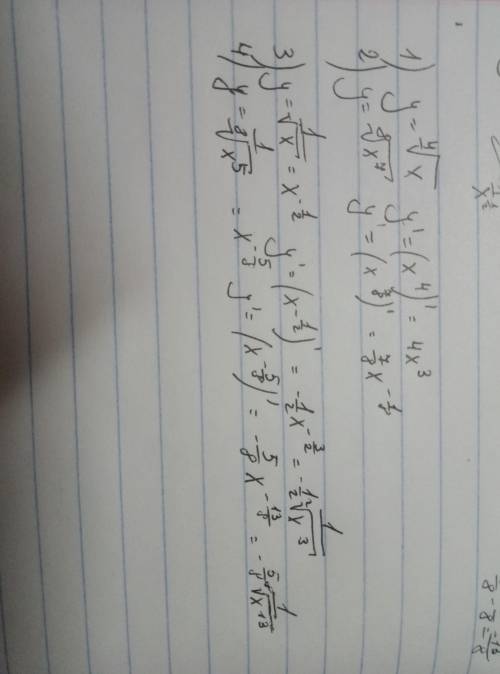 1) y = ⁴√x y' = (x⁴)' = 4x³
2) y = ⁸√x⁷ y' = (x^(7/8))' = 7/8 x^(-1/8)
3) y = 1/√x = x^(-1/2) y' = (x^(-1/2))' = -1/2 x^(-3/2) = -1/2 1/²√x³
4) y = 1/⁸√x⁵ = x^(-5/8) y' = (x^(-5/8))' = -5/8 x^(-13/8) = -5/8 1/⁸√x¹³